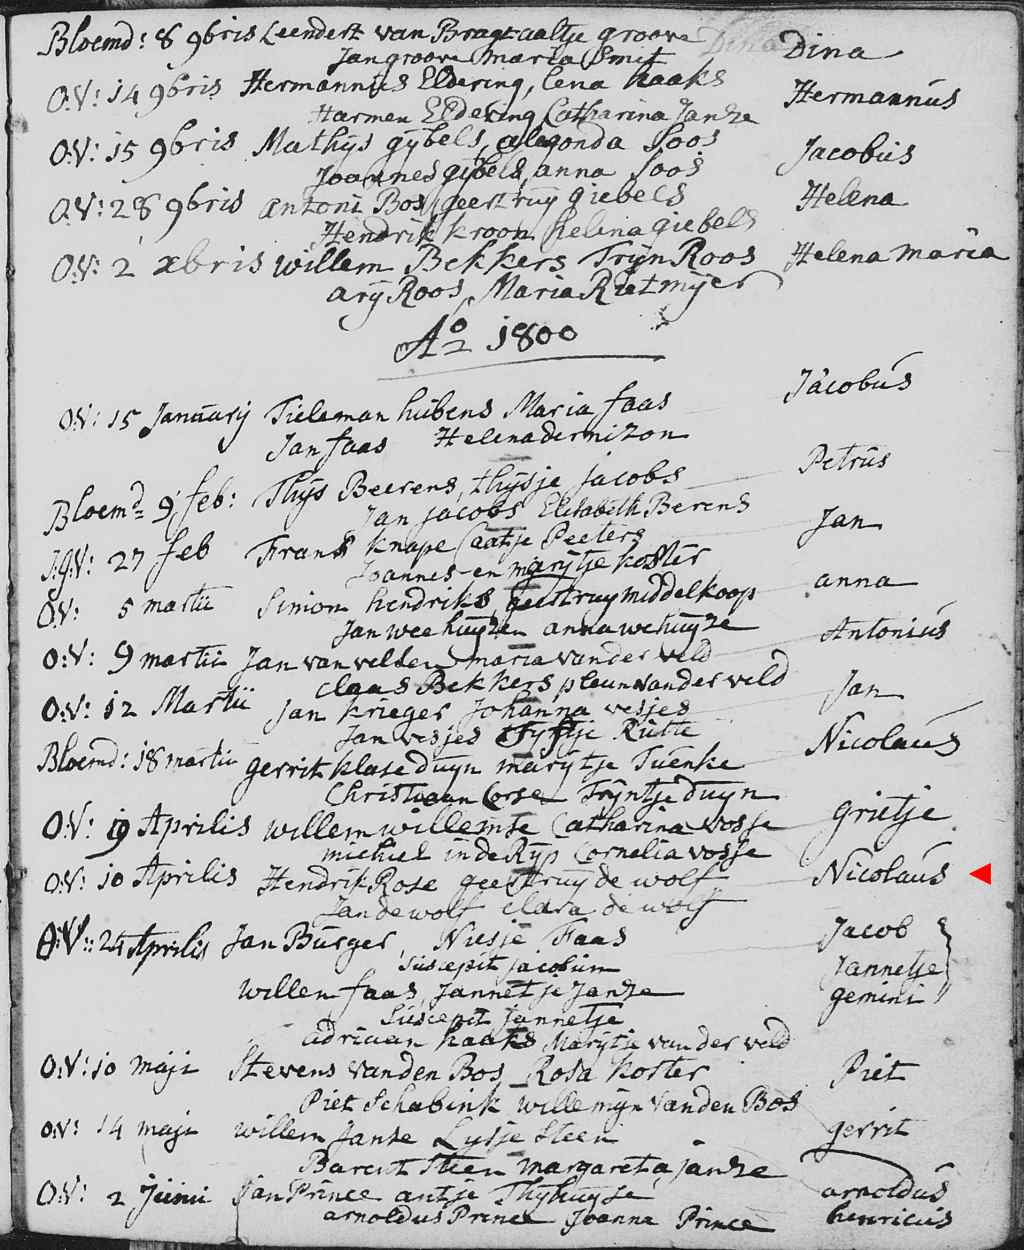 Bloemd: 8 9bris Leendert van Bragt aaltje groove Dina
Jan groove maria Smit
O:V: 14 9bris Hermannus Eldering, Lena haaks Hermannus
Harmen Eldering Catharina Janze
O:V: 15 9bris Mathijs gijbels, alegonda Soos Jacobus
Joannes gijbels, anna Soos
O.V: 28 9bris antoni Bos, geertruy giebels Helena
Hendrik kroon helena giebels
O.V: 2 xbris willem Bekkers Trijn Roos Helena maria
arij Roos, Maria Rietmijer
Ao 1800
O.V: 15 Januarij Tieleman hubens Maria faas Jacobus
Jan faas Helena dernizon
Bloemd 9 feb: Thijs Beerens, thijsje jacobs Petrus
Jan jacobs Elisabeth Berens
J:G:V: 27 feb Frans knape Caatje Peeters Jan
Joannes en marijtje koster
O:V: 5 martii Simon hendriks, geertruy middelkoop anna
Jan weehuyzen anna wehuyze
O:V: 9 martii Jan van velden maria van der veld Antonius
Claas Bekkers pleun van der veld
O:V: 12 Martii Jan krieger Johanna vesjes Jan
Jan vesjes Rutte
Bloemd: 18 martii gerrit klase duyn marijtje Tuenke Nicolaus
Christiaan Corse Trijntje duyn
O:V: 19 Aprilis willem willemse Catharina vosje grietje
michiel in de Rijp Cornelia vosse
O:V: 10 Aprilis Hendrik Rose geertruij de wolf Nicolaus
Jan de wolf clara de wolf
O:V: 24 Aprilis Jan Burger, Niesje Faas Jacob
suscepit jacobum Jannetje
willem faas, Jannetje Janze gemini
Suscepit jannetje
adriaan haaks Marijtje van der veld
O:V: 10 maji Stevens van den Bos Rosa koster Piet
Piet Schabink willemijn van den Bos
O:V: 14 maji willem Janse Lysje Steen gerrit
Barent Steen margareta janze
O:V: 2 Junii Jan Prince antje Thyhuyse arnoldus
arnoldus Prince Joanna Prince henricus